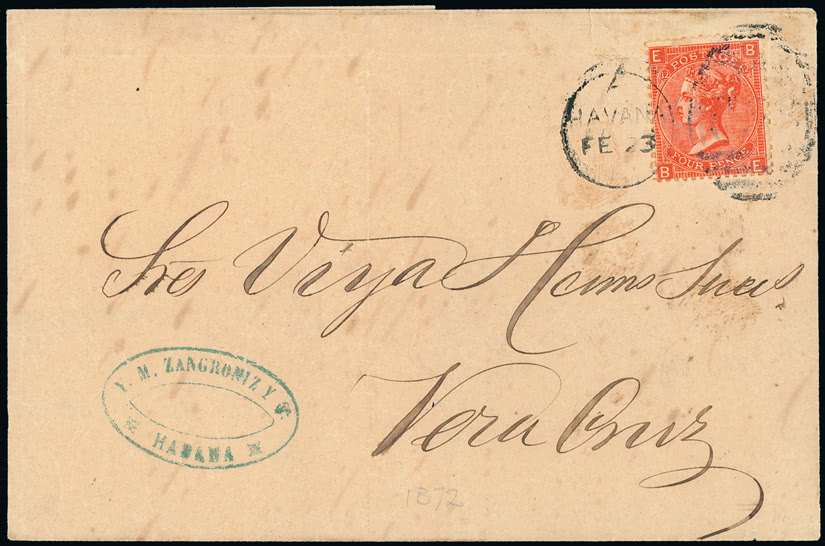 E B
POSTAGE
FOUR PENCE
B E
HAVANA
FE 23
Sres Viya Hermos Suces
Vera Cruz
Y. M. ZANGRONIZ Y Ca.
HABANA
1872